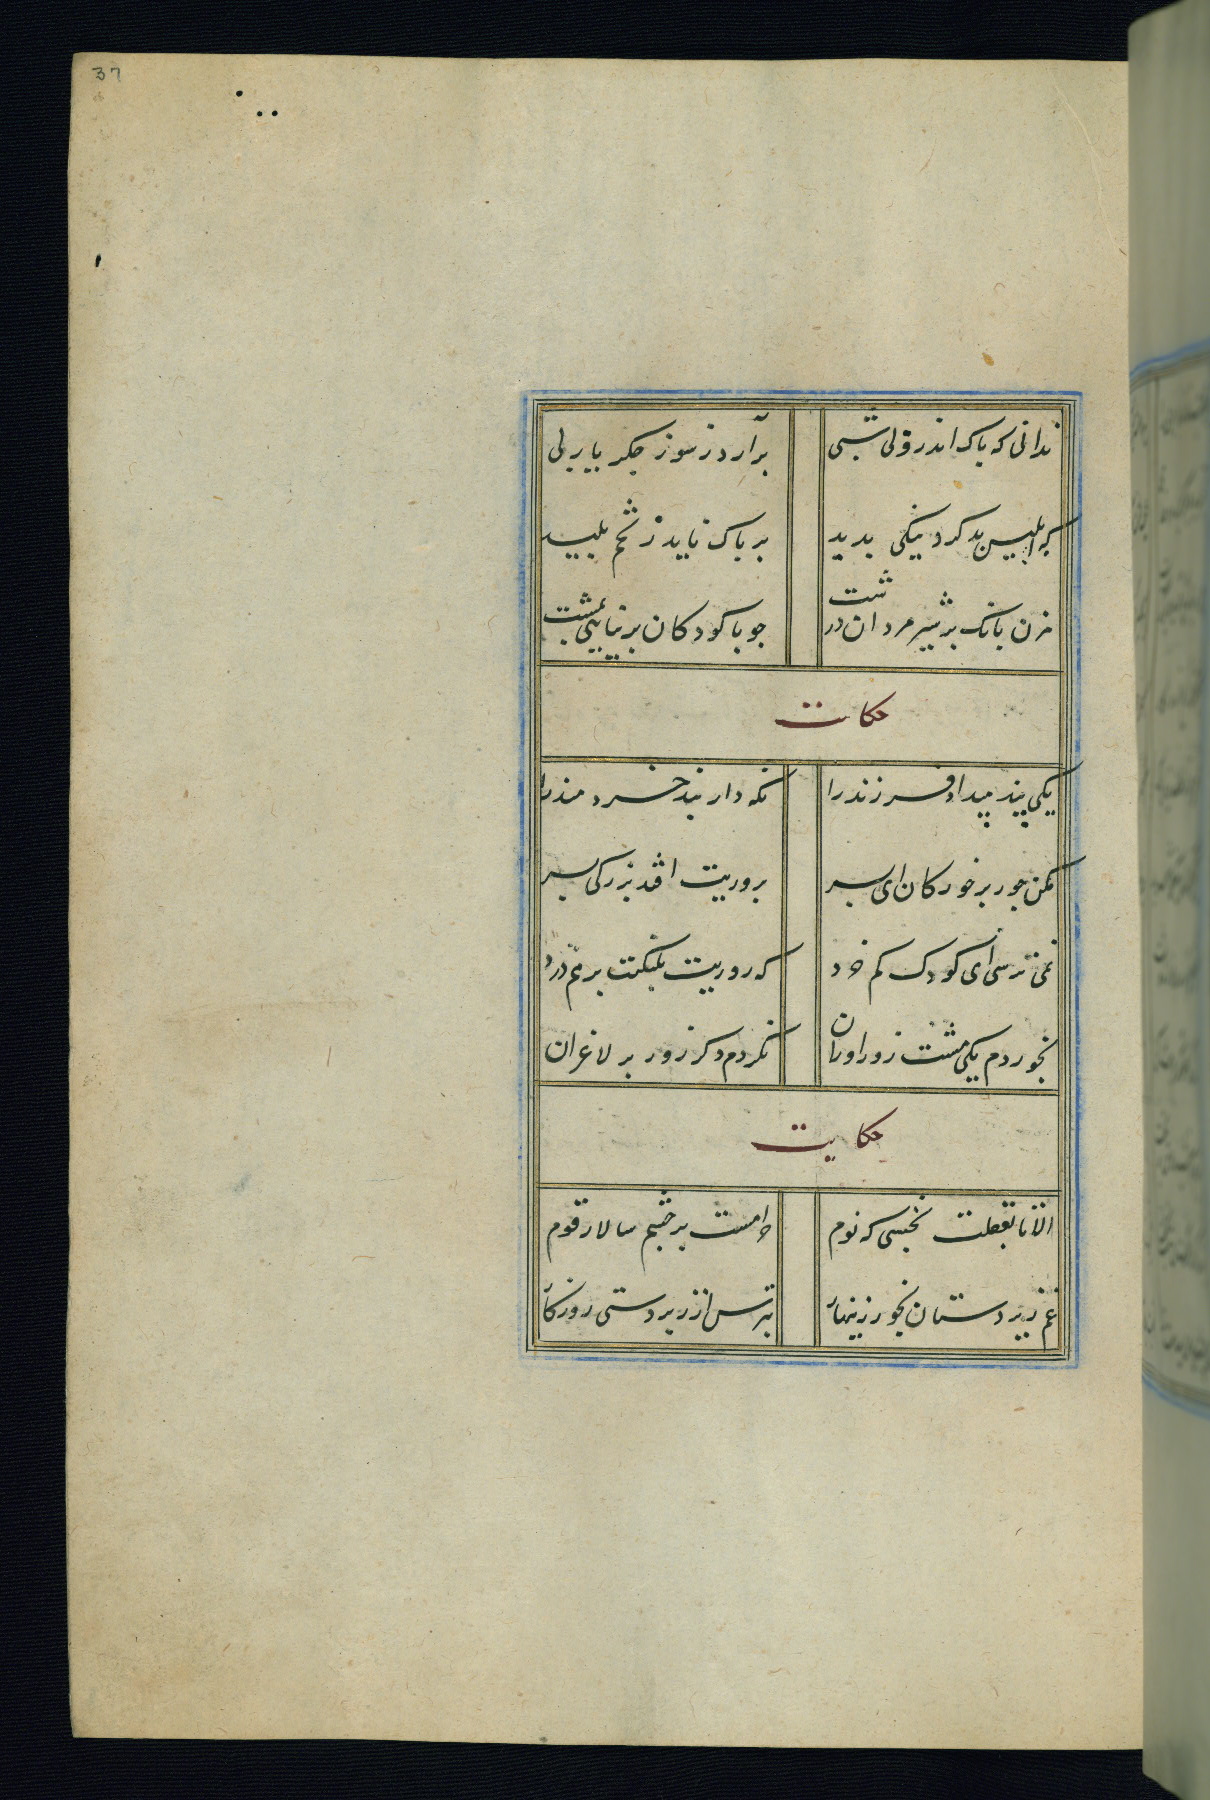 37
ندانی که پاک اندرونی شبی برآرد ز سوز جگر یاربی
که ابلیس بد کرد و نیکی ندید بر پاک ناید ز تخم پلید
مزن بانک بر شیر مردان درشت جو با کودکان بر نیایی بمشت
حکات
یکی پند میداد فرزند را نکه دار پند خردمند را
مکن جور بر خوردکان ای پسر که یک روزت افتد بزرکی بسر
نمی ترسی ای کودک کم خرد که روزیت پلنکت بر هم درد
بخوردم یکی مشت زوراوران نکردم دکر زور بر لاغران
حکایت
الا تا بغفلت نخسبی که نوم حرامست بر چشم سالار قوم
غم زیردستان بخور زینهار بترس از زبردستی روزکار